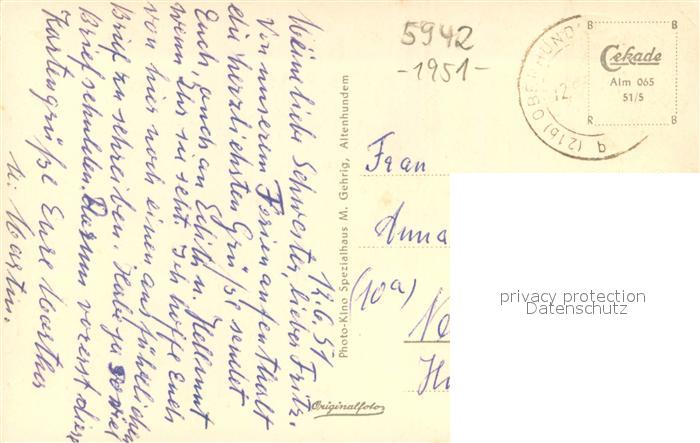 12.6.51
Meine liebe Schwester, lieber Fritz,
Von unserem Ferienaufenthalt
die herzlichsten Grüße sendet
Euch, auch an Edith u. Hellmut
wenn Ihr sie seht. Ich hoffe Euch
von hier noch einen ausführlichen
Brief zu schreiben. Habe ja so viel
Briefschulden. Darum vorerst diese
Kartengrüße Eure Marthes
u. Martin.
Photo-Kino Spezialhaus M. Gehrig, Altenhundem
Originalfoto
5942
-1951-
(21b) OBERHUND
12.
q
B B
Cekade
Alm 065
51/5
R B
Frau
Anna
(10a)
privacy protection
Datenschutz